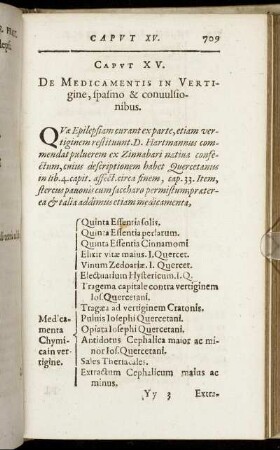 CAPVT XV. 709
CAPVT XV.
DE MEDICAMENTIS IN VERTI-
gine, spasmo & conuulsio-
nibus.
QVæ Epilepsiam curant ex parte, etiam ver-
tiginem restituunt. D. Hartmannus com-
mendat puluerem ex Zinnabari natiua confe-
ctum, cuius descriptionem habet Quercetanus
in lib. 4. capit. affect. circa finem, cap. 33. Item,
stercus pauonis cum saccharo permistum præter-
ea & talia addimus etiam medicamenta,
Quinta Essentia solis.
Quinta Essentia perlarum.
Quinta Essentia Cinnamomi
Elixir vitæ maius. I. Quercet.
Vinum Zedoariæ. I. Quercet.
Electuarium Hystericum. I. Q.
Tragema capitale contra vertiginem
Ios. Quercetani.
Tragæa ad vertiginem Cratonis.
Puluis Iosephi Quercetani.
Opiata Iosephi Quercetani.
Antidotus Cephalica maior ac mi-
nor Ios. Quercetani.
Sales Theriacales.
Extractum Cephalicum maius ac
minus.
Medica-
menta
Chymi-
ca in ver-
tigine.
Yy 3 Extra-